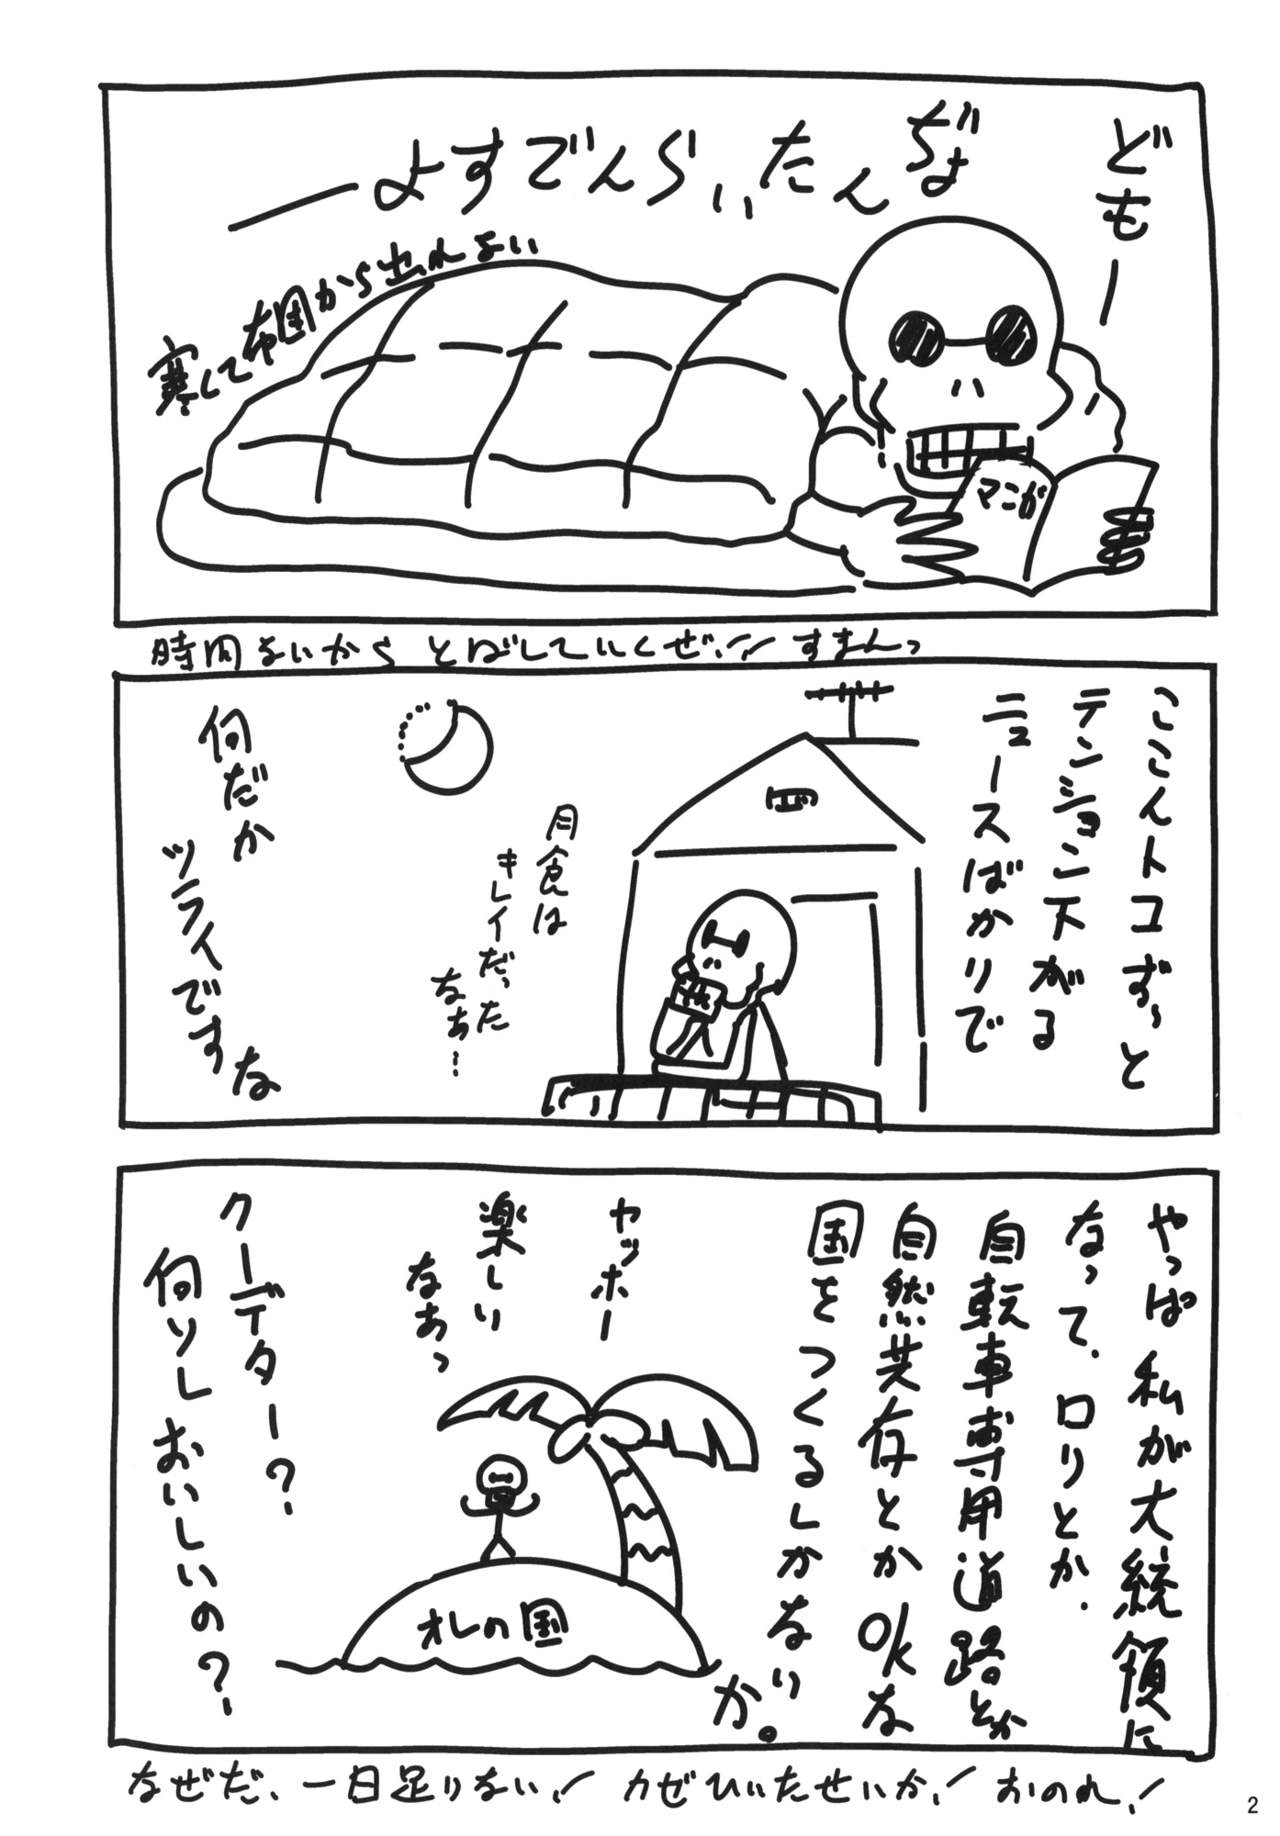 どもー
ぢょ
んたいらんですよー
寒くて布団から出れない
マンガ
時間ないからとばしていくぜ!! すまんっ
ここんトコずーっと
テンション下がる
ニュースばかりで
月食は
キレイだった
なぁ…
何だか
ツライですな
やっぱ私が大統領に
なって、ロリとか、
自転車専用道路とか
自然共存とかOKな
国をつくるしかないか。
ヤッホー
楽しい
なぁっ
オレの国
クーデター?
何ソレおいしいの?
なぜだ、一日足りない! カゼひいたせいか! おのれ!
2